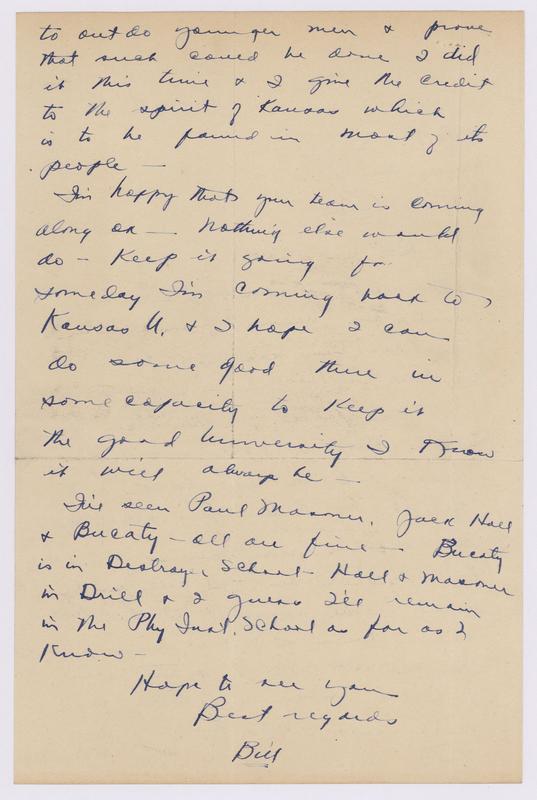 to outdo younger men & prove
that such could be done I did
it this time & I give the credit
to the spirit of Kansas which
is to be found in most of its
people —
I'm happy thats your team is coming
along ok — Nothing else would
do — Keep it going for
someday I'm coming back to
Kansas U. & I hope I can
do some good there in
some capacity to keep it
the good University I know
it will always be —
I've seen Paul Masoner, Jack Hall
& Bucaty — all are fine — Bucaty
is in Destroyer School — Hall & Masoner
in Drill & I guess I'll remain
in the Phy Inst. School as far as I
know —
Hope to see you
Best regards
Bill